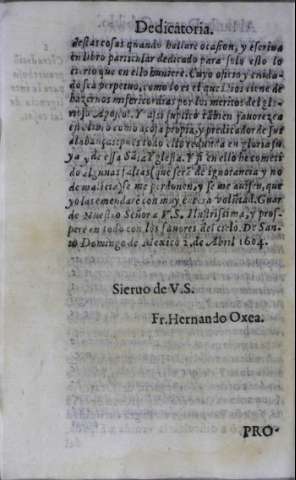 Dedicatoria.
destas cosas quando hallare ocasion, y escriva
en libro particular dedicado para solo esto lo
cierto que en ello huviere. Cuyo oficio y cuida-
do sea perpetuo, como lo es el que Dios tiene de
hazernos misericordias por los meritos del glo-
rioso Apostol. Y assi suplico tambien favorezca
este libro como a cosa propia, y predicador de sus
alabanças: pues todo ello redunda en gloria su
ya y de essa Sāta Yglesia. Y si en ello he cometi
do algunas faltas (que serā de ignorancia y no
de malicia) se me perdonen, y se me avisen, que
yo las emendare con muy entera volūtad. Guar
de Nuestro Señor a V.S. Illustrissima, y pros-
pere en todo con los favores del cielo. De San-
to Domingo de Mexico 2. de Abril 1604.
Siervo de V.S.
Fr. Hernando Oxea.
PRO-